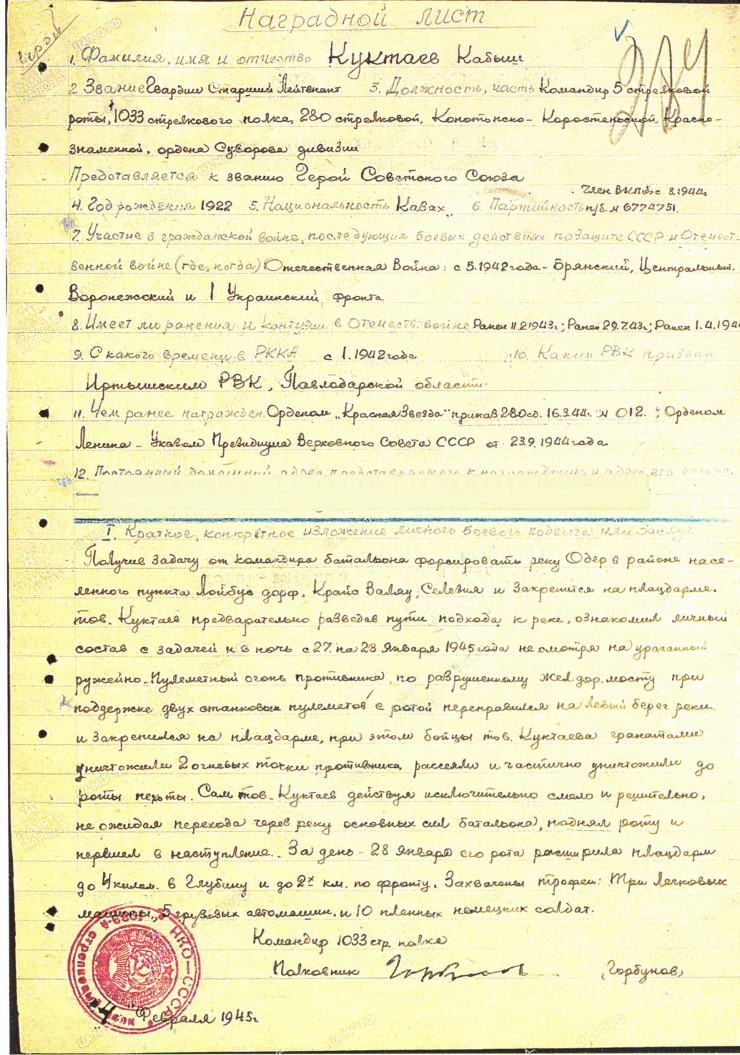 Наградной лист
Герой
1. Фамилия, имя и отчество Куктаев Кабыш
2. Звание Гвардии Старший Лейтенант 3. Должность, часть Командир 5 стрелковой
роты, 1033 стрелкового полка, 280 стрелковой, Конотопско-Коростенской, Красно-
знаменной, ордена Суворова дивизии
Представляется к званию Герой Советского Союза
4. Год рождения 1922 5. Национальность Казах 6. Партийность Член ВКП(б) с 8.1944г. п/б. № 6774751.
7. Участие в гражданской войне, последующих боевых действиях по защите СССР и Отечест-
венной войне (где, когда) Отечественная Война: с 5.1942 года - Брянский, Центральный.
Воронежский и 1 Украинский фронта
8. Имеет ли ранения и контузии в Отечеств. войне Ранен 11.2.1943г; Ранен 29.7.43г; Ранен 1.4.194
9. С какого времени в РККА с 1.1942 года 10. Каким РВК призван
Иртышским РВК, Павлодарской области.
11. Чем ранее награжден. Орденом „Красная Звезда" приказ 280 сд. 16.3.44г. № 012.; Орденом
Ленина - Указом Президиума Верховного Совета СССР от 23.9.1944 года
12. Постоянный домашний адрес представляемого к награждению и адрес его семьи.
I. Краткое, конкретное изложение личного боевого подвига или заслуг
Получив задачу от командира батальона форсировать реку Одер в районе насе-
ленного пункта Лойбус дорф, Крайс Валяу, Селезия и Закрепится на плацдарме.
тов. Куктаев предварительно разведав пути подхода к реке, ознакомил личный
состав с задачей и в ночь с 27 на 28 Января 1945 года не смотря на ураганный
ружейно-Пулеметный огонь противника, по разрушенному жел.дор. мосту при
поддержке двух станковых пулеметов с ротой переправился на левый берег реки
и закрепился на плацдарме, при этом бойцы тов. Куктаева гранатами
уничтожили 2 огневых точки противника, рассеяли и частично уничтожили до
роты пехоты. Сам тов. Куктаев действуя исключительно смело и решительно,
не ожидая перехода через реку основных сил батальона, поднял роту и
перешел в наступление. За день - 28 Января его рота расширила плацдарм
до 4 килом. в Глубину и до 2х км. по фронту. Захвачены трофеи: Три легковых
машины, 5 грузовых автомашин, и 10 пленных немецких солдат.
Командир 1033 стр. полка
Полковник Горбунов
НКО-СССР
4 Февраля 1945г